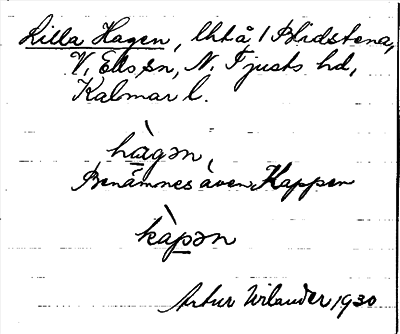 Lilla Hagen, lht å 1 Blidstena,
V. Eds sn, N. Tjusts hd,
Kalmar l.
hàgən,
Benämnes även Kappen
kàpən
Artur Wilander 1930